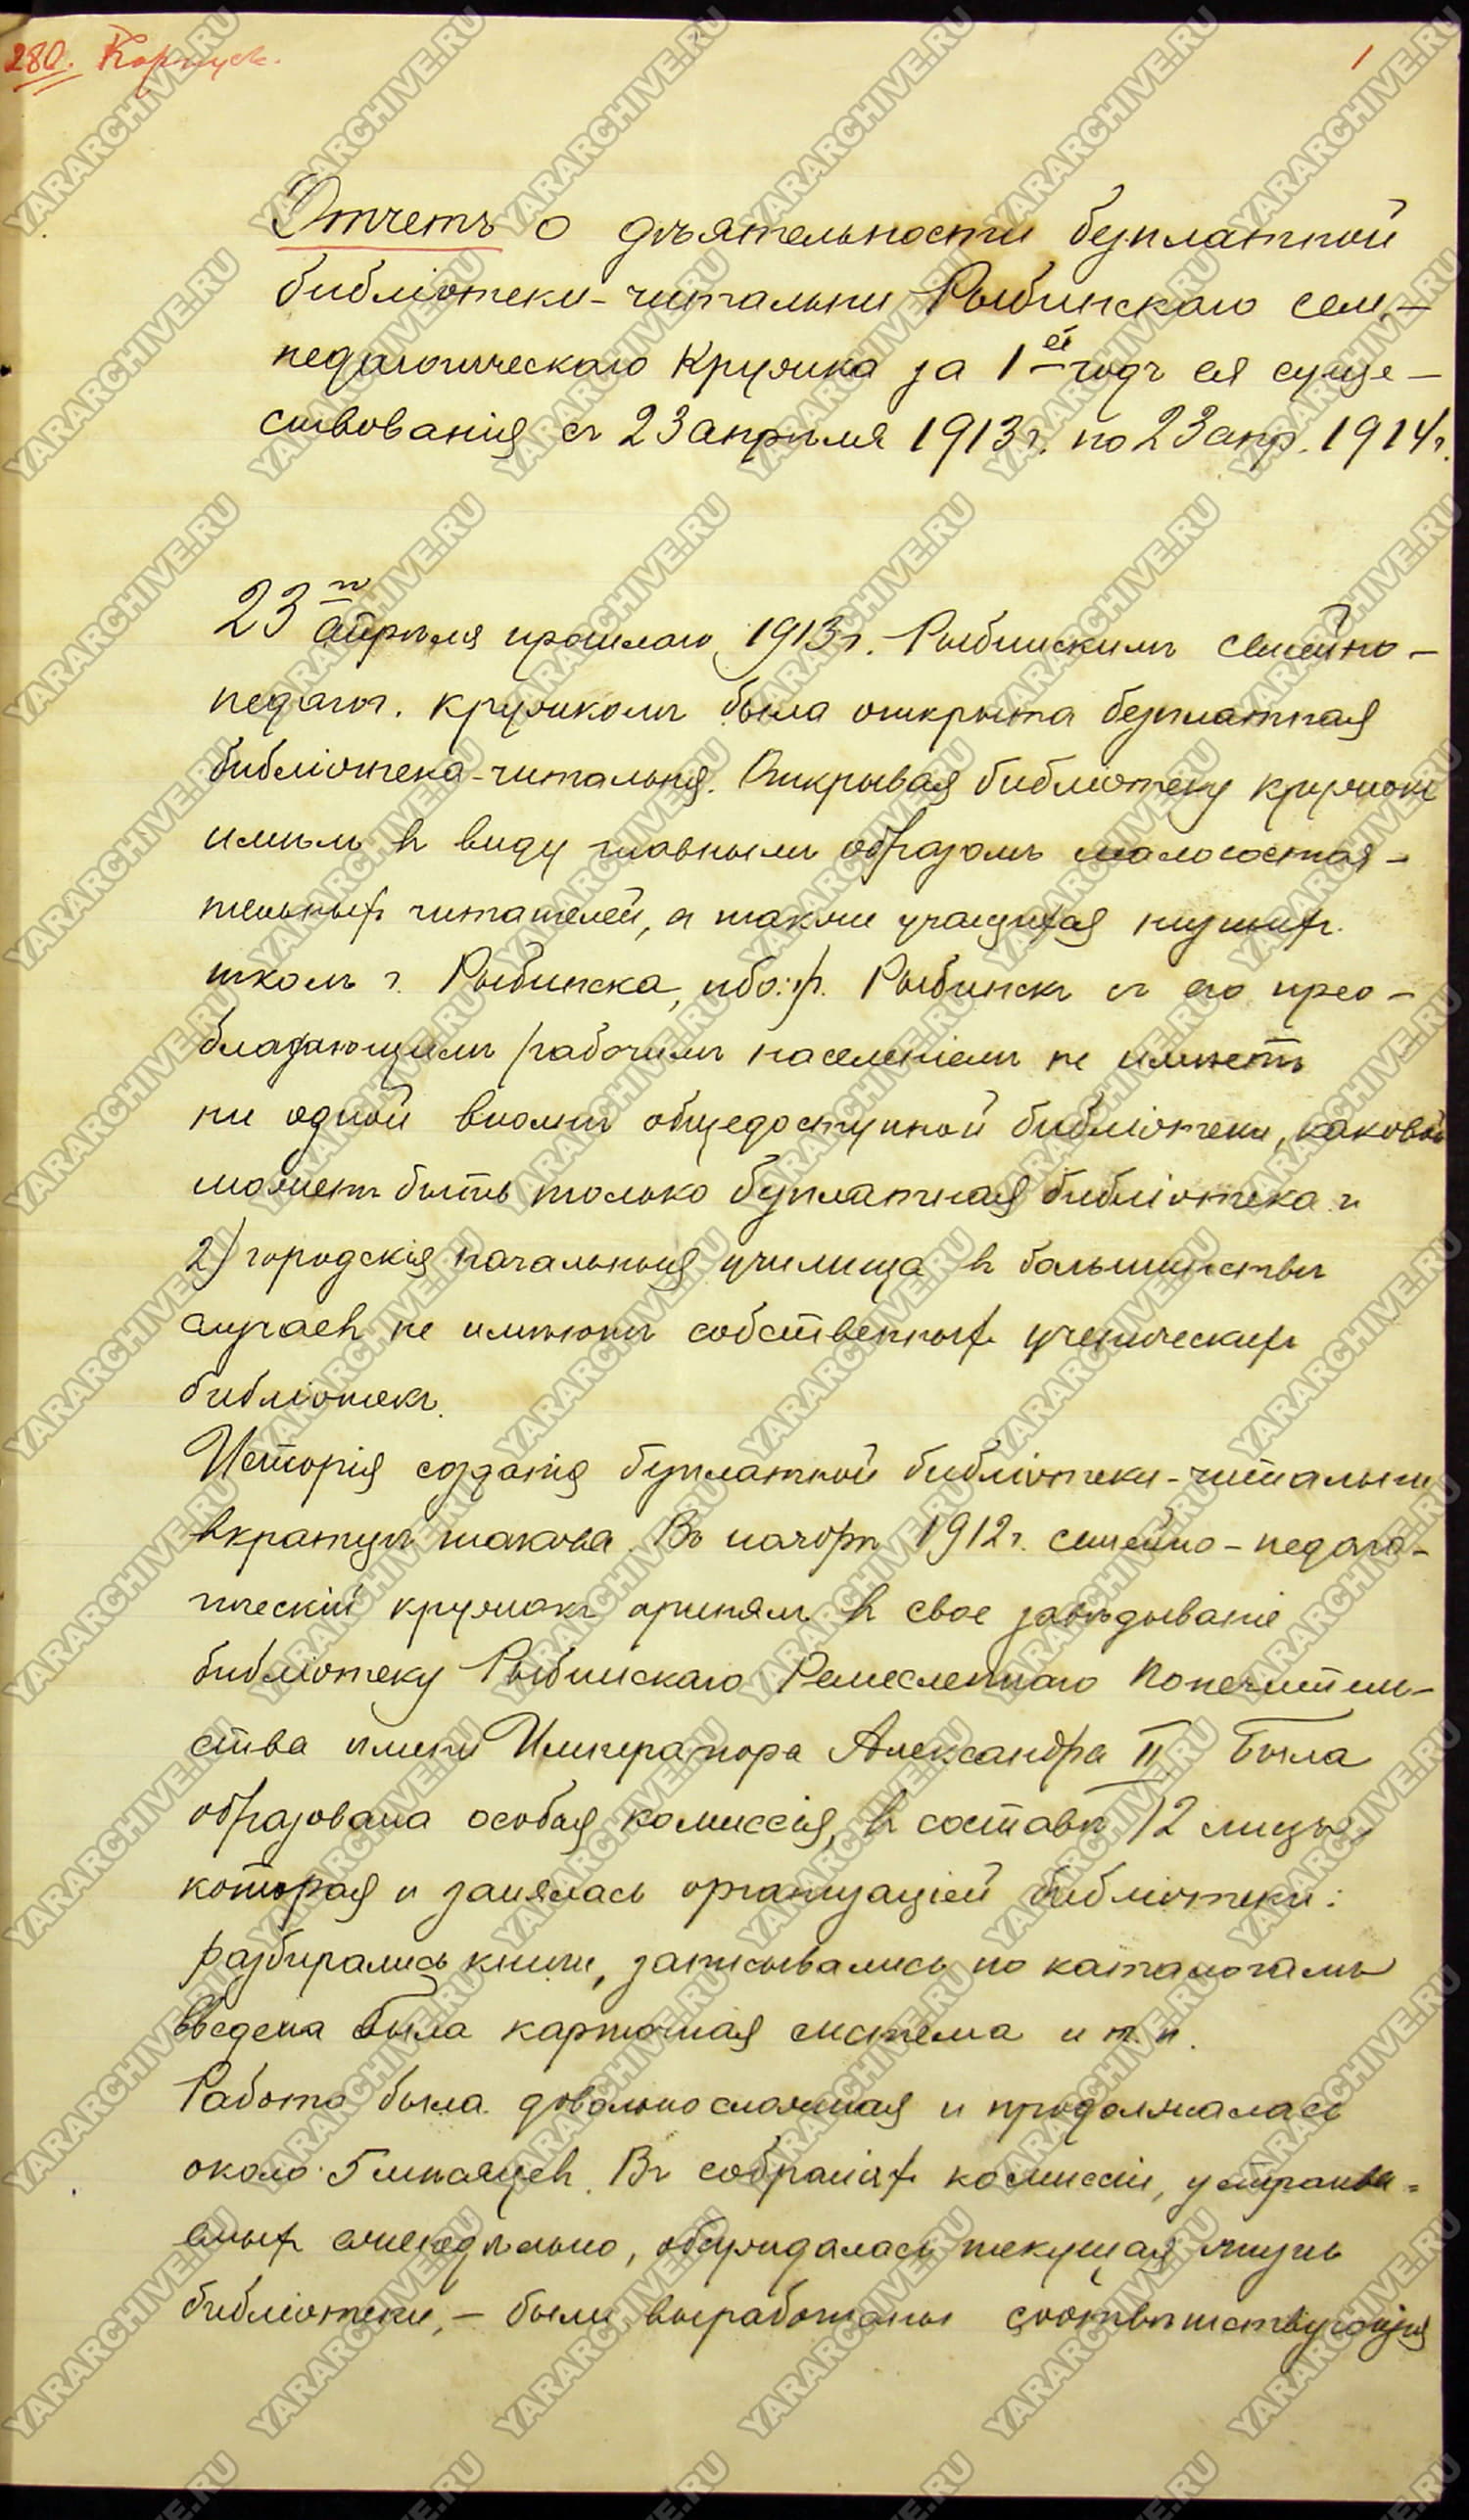 280. Корпусъ.
1
Отчетъ о дѣятельности безплатной
библіотеки-читальни Рыбинскаго сем.-
педагогическаго Кружка за 1ый годъ ея суще-
ствованія съ 23 апрѣля 1913 г. по 23 апр. 1914 г.
23го апрѣля прошлаго 1913 г. Рыбинскимъ семейно-
педагог. кружкомъ была открыта безплатная
библіотека-читальня. Открывая библіотеку кружокъ
имѣлъ въ виду главнымъ образомъ малосостоя-
тельныхъ читателей, а также учащихся низшихъ
школъ г. Рыбинска, ибо: 1) Рыбинскъ съ его прео-
бладающимъ рабочимъ населеніемъ не имѣетъ
ни одной вполнѣ общедоступной библіотеки, каковой
можетъ быть только безплатная библіотека и
2) городскія начальныя училища въ большинствѣ
случаевъ не имѣютъ собственныхъ ученическихъ
библіотекъ.
Исторія созданія безплатной библіотеки-читальни
вкратцѣ такова. Въ ноябрѣ 1912 г. семейно-педаго-
гическій кружокъ принялъ въ свое завѣдываніе
библіотеку Рыбинскаго Ремесленнаго Попечитель-
ства имени Императора Александра II. Была
образована особая комиссія, въ составѣ 12 лицъ,
которая и занялась организаціей библіотеки:
разбирались книги, записывались по каталогамъ
введена была карточная система и т. п.
Работа была довольно сложная и продолжалась
около 5 мѣсяцевъ. Въ собраніяхъ комиссіи, устраива-
емыхъ еженедѣльно, обсуждалась текущая жизнь
библіотеки, - были выработаны соотвѣтствующія
YARARCHIVE.RU